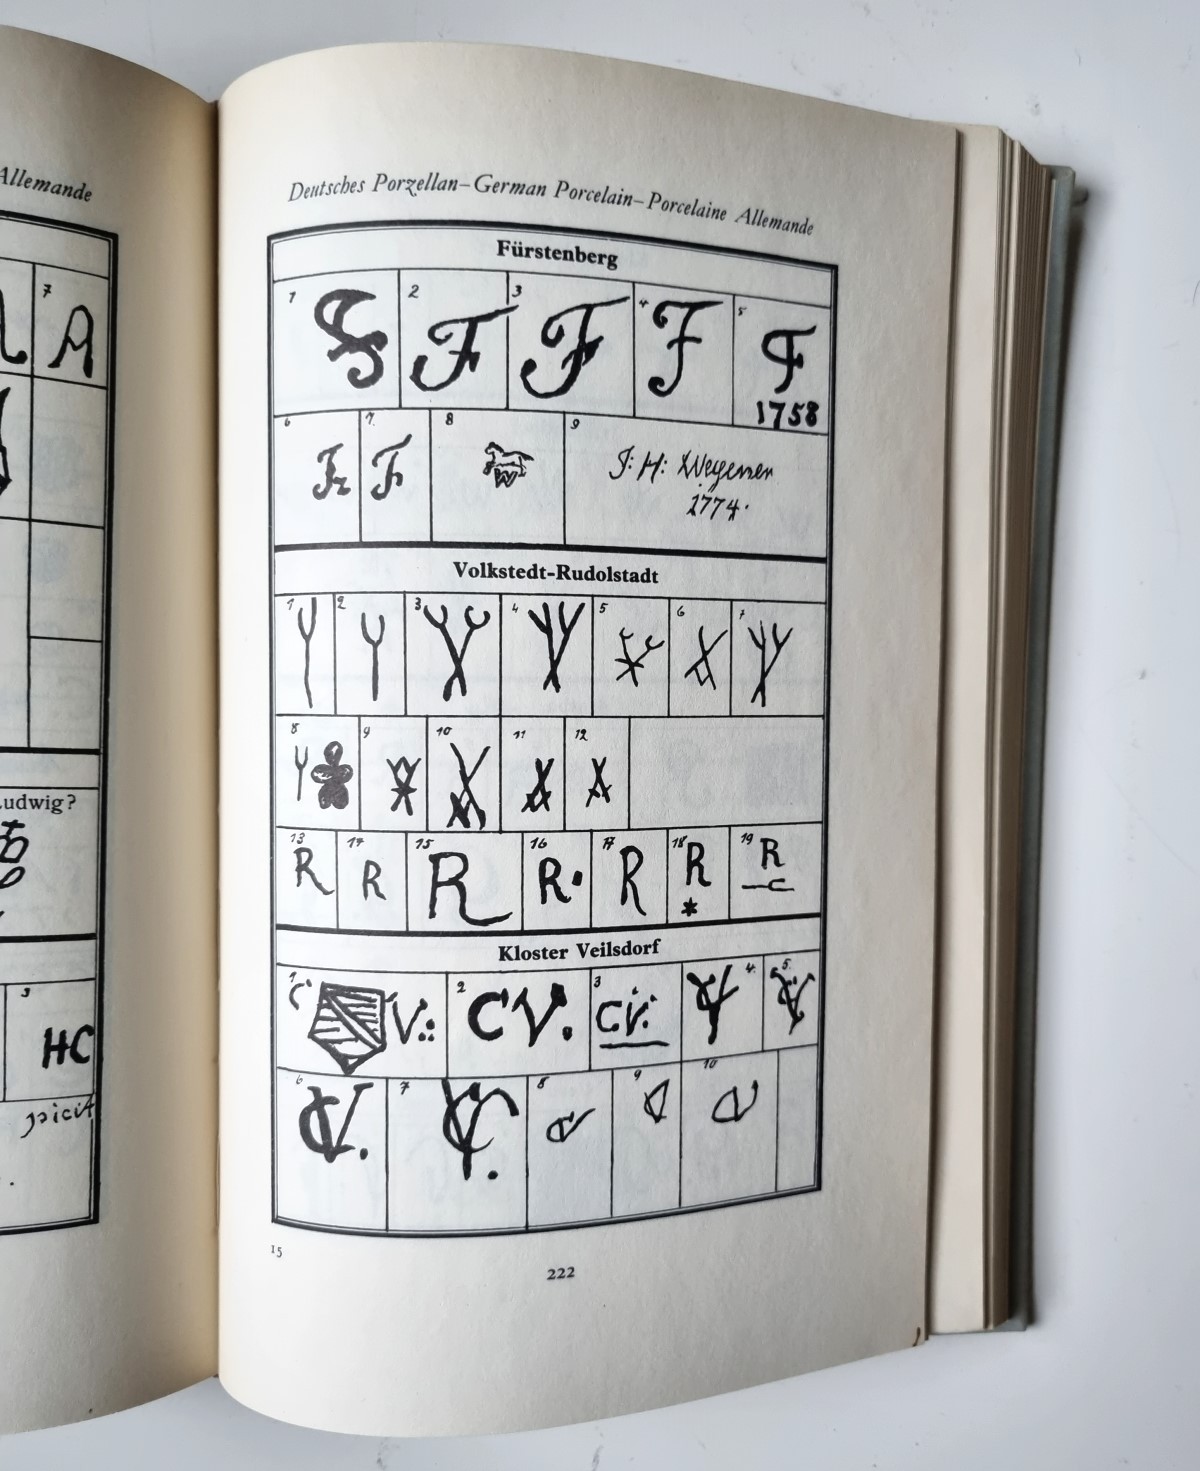 Allemande
7
A
udwig?
3
HC
Deutsches Porzellan–German Porcelain–Porcelaine Allemande
Fürstenberg
1 2 3 4 5
F F F F
1758
6 7 8 9
Fz F W J: H: Wegener
1774.
Volkstedt-Rudolstadt
1 2 3 4 5 6 7
8 9 10 11 12
13 14 15 16 17 18 19
R R R R. R R R
*
Kloster Veilsdorf
1 2 3 4 5
C V: CV. C.V. CV CV
6 7 8 9 10
CV. CV.
15
222